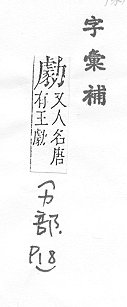 字彙補
勮
又人名唐
有王勮
力部.
P.18